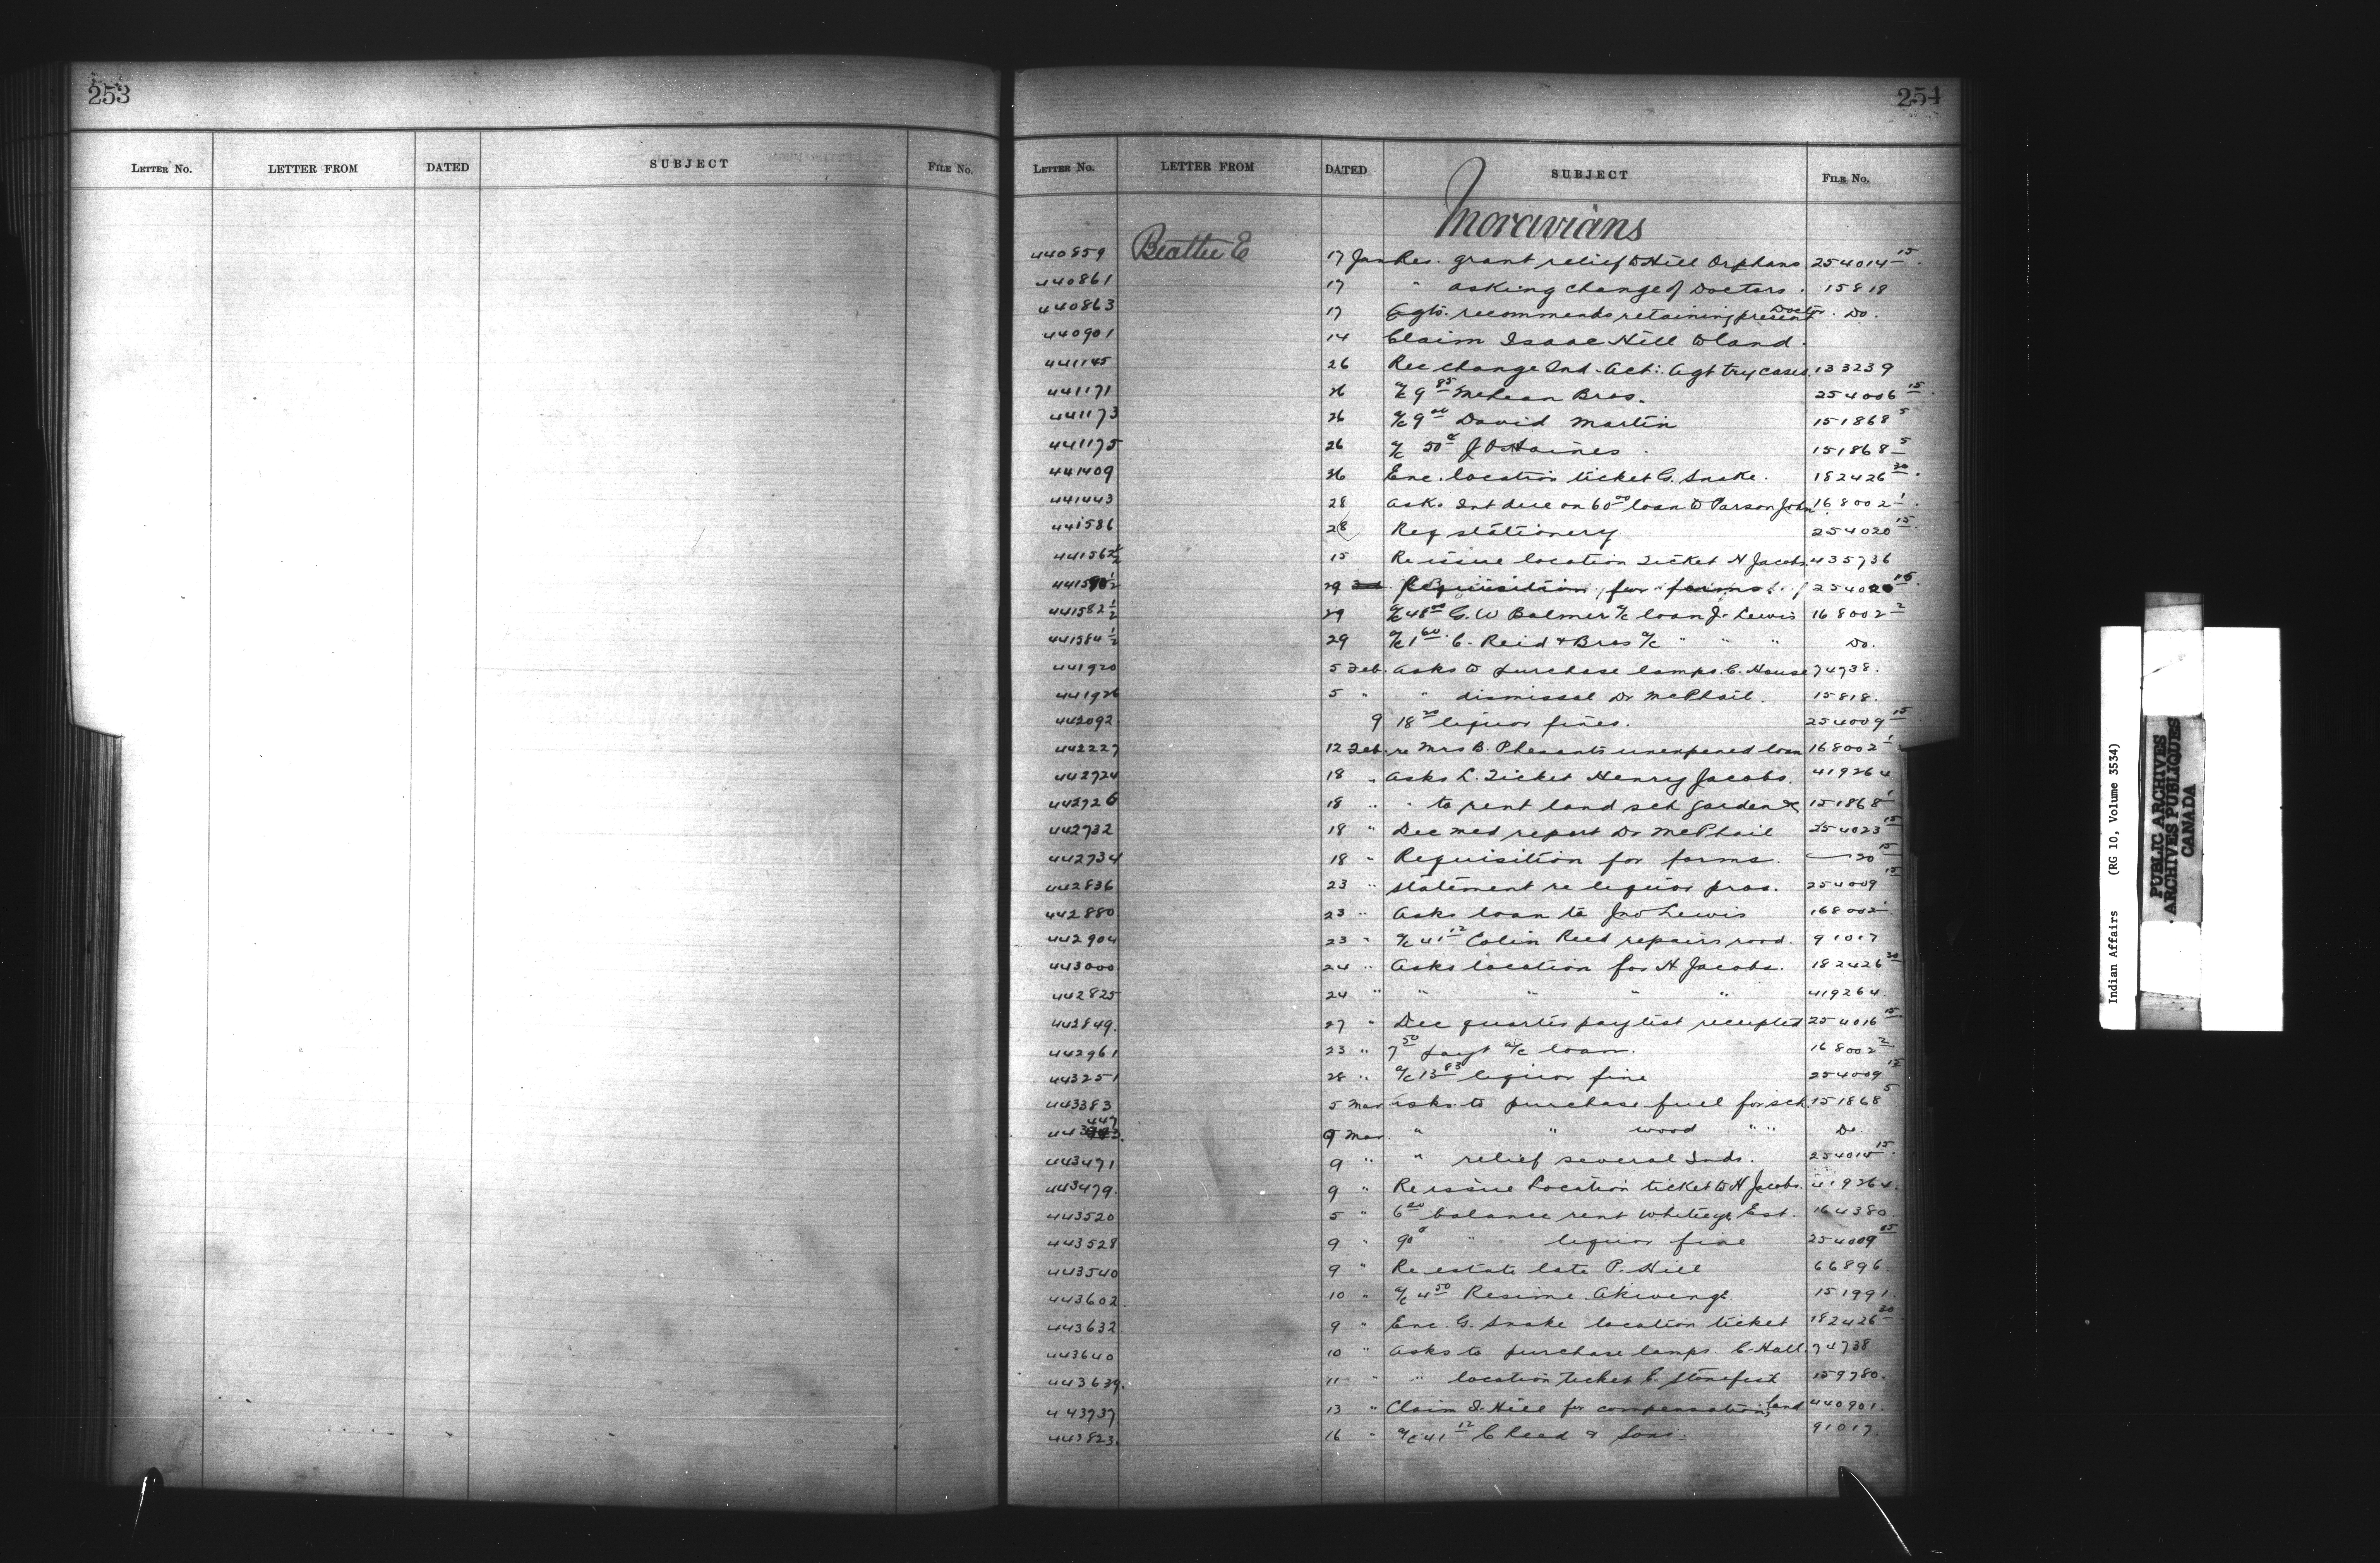 253
LETTER NO. LETTER FROM DATED SUBJECT FILE NO.
254
LETTER NO. LETTER FROM DATED SUBJECT FILE NO.
Moravians
440859 Beattie E 17 Jan Res. grant relief to Hill Orphans 254014-15.
440861 17 " asking change of Doctors. 15818
440863 17 Agts. recommends retaining present Doctor. Do.
440901 14 Claim Isaac Hill to land.
441145 26 Rec change Ind. Act: Agt try cases. 133239
441171 26 a/c 9 85 McLean Bros. 254006 15.
441173 26 a/c 9 00 David Martin 151868 5
441175 26 a/c 50¢ J O Haines. 151868-5
441409 26 Enc. location ticket G. Snake. 182426 30.
441443 28 Asks Int due on 60 00 loan to Parson John 168002-1.
441586 28 Req stationery. 254020 15.
441562½ 15 Re issue location ticket H Jacobs. 435736
29 Requisition for forms. 254020 15.
441582½ 29 a/c 48 00 G. W Balmer a/c loan J. Lewis 168002-2
441584½ 29 a/c 1 60 C. Reid & Bros a/c " " " Do.
441920 5 Feb. Asks to purchase lamps. C. House 74738.
441926 5 " " dismissal Dr McPhail. 15818.
442092 9 18 20 liquor fines. 254009 15
442227 12 Feb. re Mrs B. Pheasants unexpened loan 168002-1
442724 18 " Asks L. Ticket Henry Jacobs. 419264
442726 18 " " to rent land sch garden &c 151868-1
442732 18 " Dec med report Dr McPhail 254023 15
442734 18 " Requisition for forms. — 20 15
442836 23 " Statement re liquor pros. 254009 15
442880 23 " Asks loan to Jno Lewis 168002-1.
442904 23 " a/c 41 12 Colin Reed repairs road. 91017
443000 24 " Asks location for H Jacobs. 182426 30
442825 24 " " " " " 419264.
442849. 27 " Dec quarter paylist receipted 254016 15.
442961 23 " 7 50 payt a/c loan. 168002 2
443251 28 " a/c 13 83 liquor fine 254009 15
443383 5 Mar Asks to purchase fuel for sch. 151868 5
443 447 9 Mar. " " wood " " Do.
443471 9 " " relief several Inds. 254014 15.
443479. 9 " Re issue Location ticket to H Jacobs. 419264.
443520 5 " 6 20 balance rent Whiteye Est. 164380.
443528 9 " 90¢ " liquor fine 254009 15
443540 9 " Re estate late P. Hill 66896.
443602. 10 " a/c 4 50 151991.
443632 9 " Enc. G. Snake location ticket 182426 30
443640 10 " Asks to purchase lamps. C. Hall. 74738
443639. 11 " " location ticket C. Stonefish 159780.
443737 13 " Claim I. Hill for compensation, land 440901.
443823. 16 " a/c 41 12 C Reed & Sons. 91017.
Indian Affairs (RG 10, Volume 3534)
PUBLIC ARCHIVES
ARCHIVES PUBLIQUES
CANADA